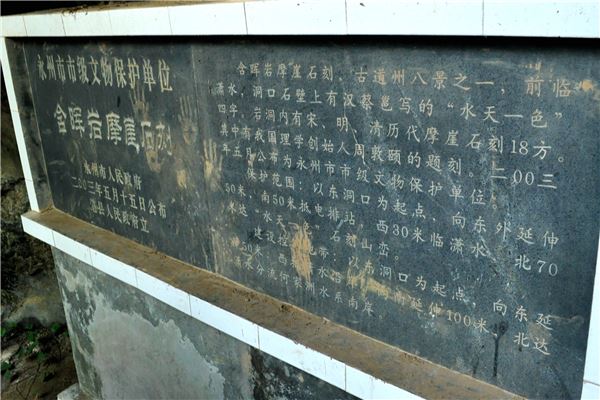 永州市市级文物保护单位
含晖岩摩崖石刻
永州市人民政府
二〇〇三年五月十五日公布
县人民政府立
含晖岩摩崖石刻,古道州八景之一,前临
潇水,洞口石壁上有汉蔡邕写的“水天一色”
四字,岩洞内有宋、明、清历代摩崖石刻18方。
其中有我国理学创始人周敦颐的题刻。二00三
年五月公布为永州市市级文物保护单位。
保护范围:以东洞口为起点,向东外延伸
50米,南50米抵电排站,西30米临潇水,北70
米达“水天一色”石刻山峦。
建设控地带:以东洞口为起点,向东延
50米,水南延伸100米,北达
分流水系南岸。